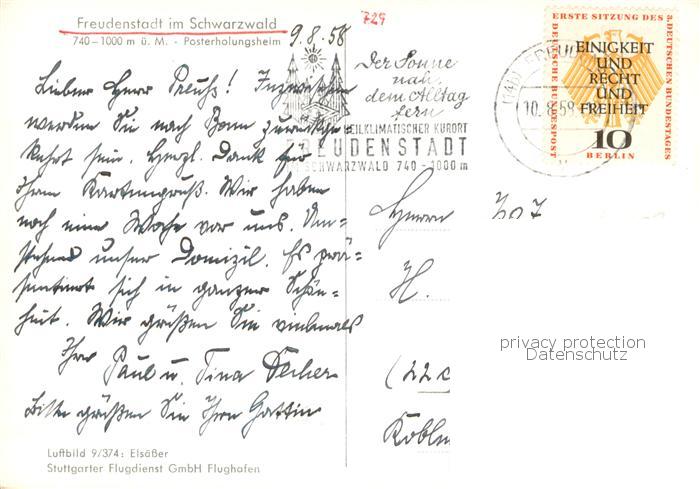 Freudenstadt im Schwarzwald
740–1000 m ü. M. - Posterholungsheim
729
9.8.58
Lieber Herr Preuß! Inzwischen
werden Sie nach Bonn zurückge-
kehrt sein. Herzl. Dank für
Ihren Kartengruß. Wir haben
noch eine Woche vor uns. Um-
stehend unser Domizil. Es prä-
sentiert sich in ganzer Schön-
heit. Wir grüßen Sie vielmals
Ihre Paul u. Tina
Bitte grüßen Sie Ihre Gattin
Luftbild 9/374: Elsäßer
Stuttgarter Flugdienst GmbH Flughafen
Der Sonne
nah,
dem Alltag
fern
HEILKLIMATISCHER KURORT
FREUDENSTADT
SCHWARZWALD 740 - 1000 m
10.8.58
ERSTE SITZUNG DES 3. DEUTSCHEN BUNDESTAGES
DEUTSCHE BUNDESPOST
EINIGKEIT
UND
RECHT
UND
FREIHEIT
10
BERLIN
Herrn
H.
(22c
Koble
privacy protection
Datenschutz